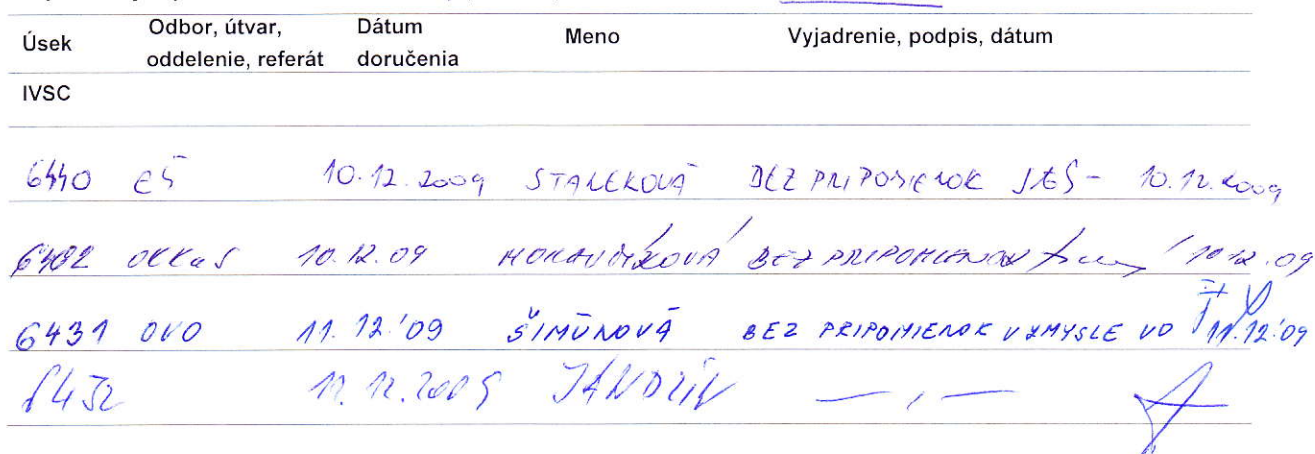 Úsek Odbor, útvar, oddelenie, referát Dátum doručenia Meno Vyjadrenie, podpis, dátum
IVSC
6440 EŠ 10.12.2009 STANEKOVÁ BEZ PRIPOMIENOK 10.12.2009
10.12.09 BEZ PRIPOMIENOK 10.12.09
6431 OVO 11.12.'09 ŠIMÚNOVÁ BEZ PRIPOMIENOK V ZMYSLE VO 11.12.'09
6432 11.12.2009 JANDZÍK — , —